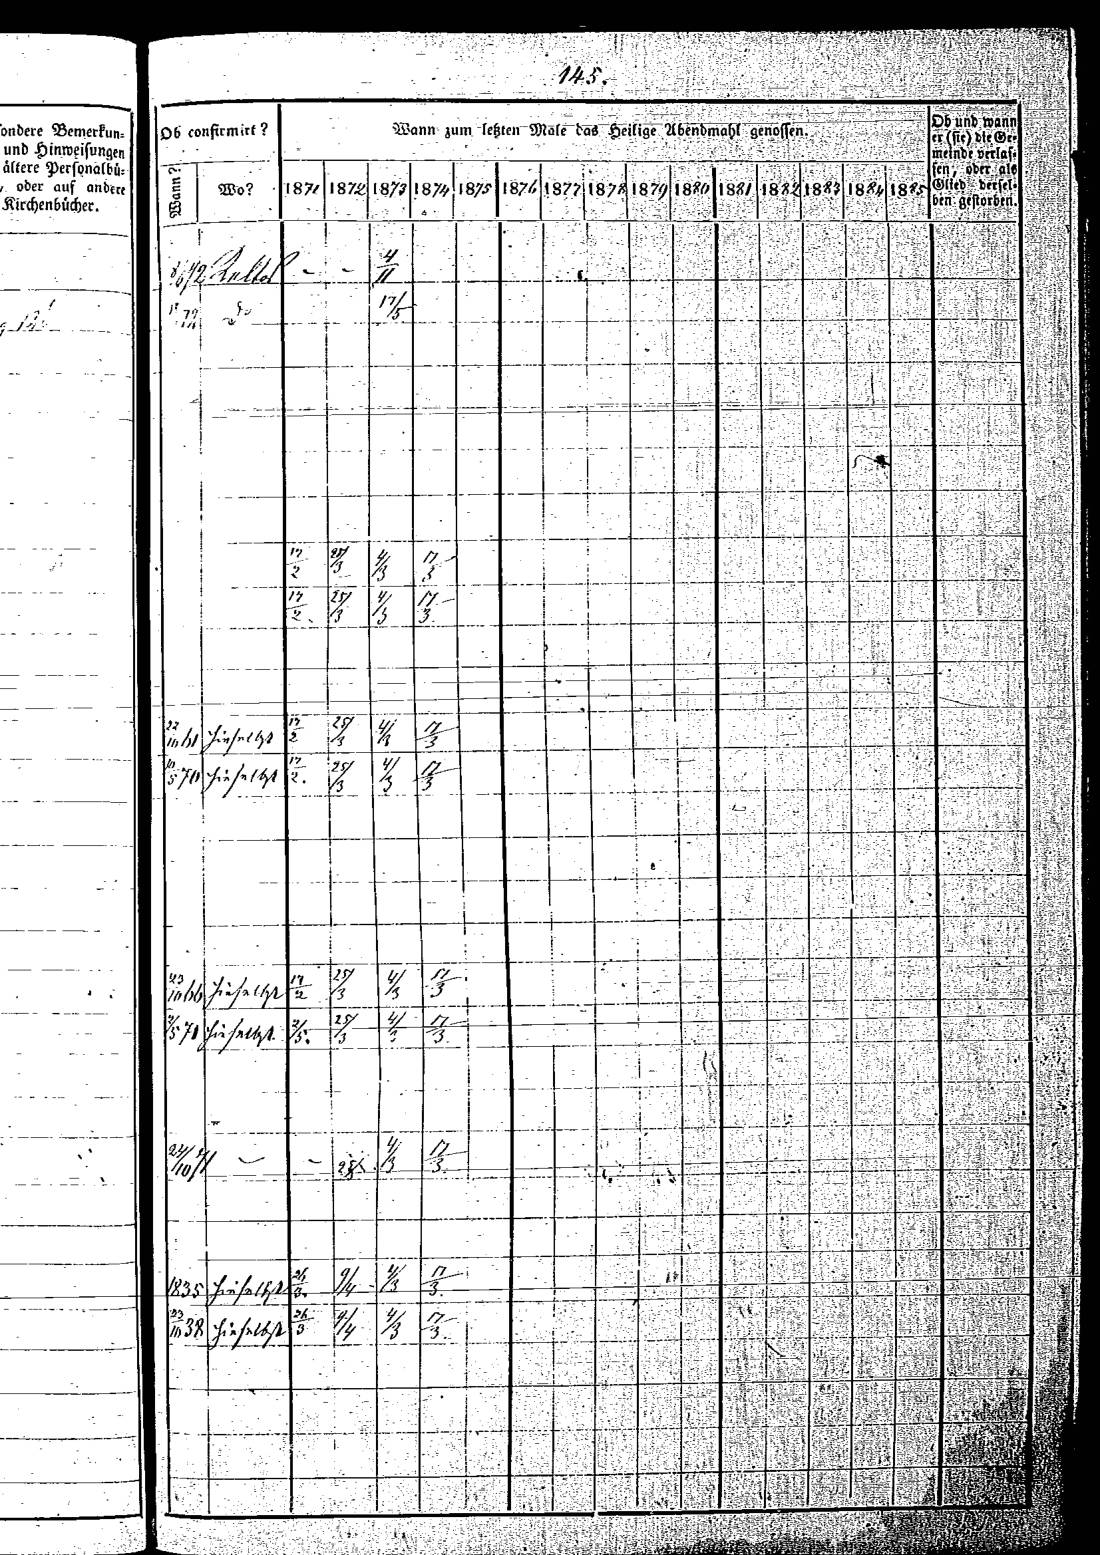 145.
sondere Bemerkun=
und Hinweisungen
ältere Personalbü=
, oder auf andere
Kirchenbücher.
Ob confirmirt?
Wann?
Wo?
Wann zum letzten Male das Heilige Abendmahl genossen.
1871 1872 1873 1874 1875 1876 1877 1878 1879 1880 1881 1882 1883 1884 1885
Ob und wann
er (sie) die Ge=
meinde verlas=
sen, oder als
Glied dersel=
ben gestorben.
– – 4/11
17/5
17/2 25/3 4/3 17/3
17/2 25/3 4/3 17/3
22/10 61 hieselbst 17/2 25/3 4/3 17/3
10/5 70 hieselbst 17/2 25/3 4/3 17/3
23/10 66 hieselbst 17/2 25/3 4/3 17/3
2/5 71 hieselbst 2/5 25/3 4/3 17/3
24/10 71 – – 4/3 17/3
1835 hieselbst 26/3 9/4 4/3 17/3
23/10 38 hieselbst 26/3 9/4 4/3 17/3